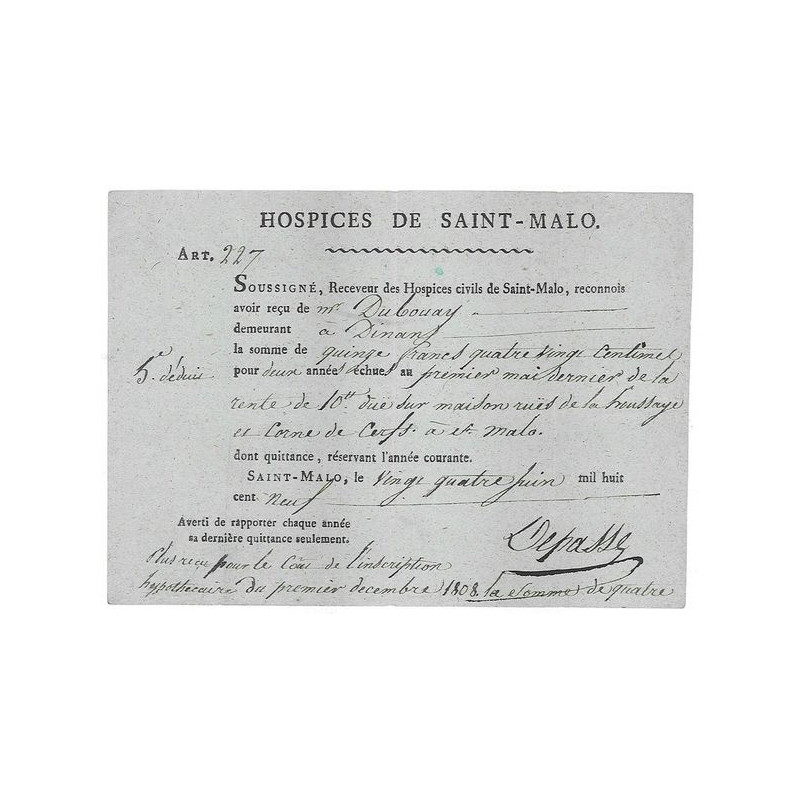 HOSPICES DE SAINT-MALO.
ART. 227
SOUSSIGNÉ, Receveur des Hospices civils de Saint-Malo, reconnois
avoir reçu de mr Dubouay
demeurant à Dinan
la somme de quinze francs quatre vingt centimes
5e déduit
pour deux années échues au premier mai dernier de la
rente de 10tt duë sur maison ruës de la houssaye
et Corne de Cerf à St malo.
dont quittance, réservant l'année courante.
SAINT-MALO, le vingt quatre juin mil huit
cent neuf
Averti de rapporter chaque année
sa dernière quittance seulement.
Depasse
Plus reçu pour le Coût de l'inscription
hypothecaire du premier decembre 1808. la somme de quatre